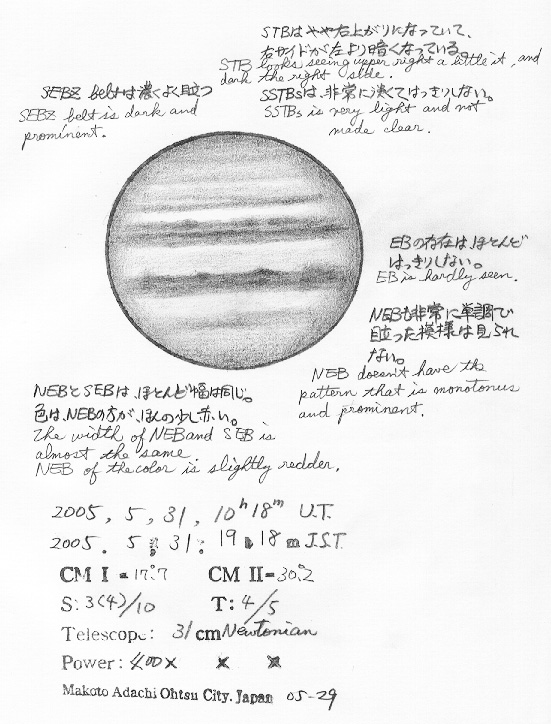 STBはやや右上がりになっていて、
右サイドが左より暗くなっている。
STB looks seeing upper right a little it, and
dark the right side.
SSTBsは、非常に淡くてはっきりしない。
SSTBs is very light and not
made clear.
SEBZ beltは濃くよく目立つ
SEBZ belt is dark and
prominent.
EBの存在は、ほとんど
はっきりしない。
EB is hardly seen.
NEBも非常に単調で
目立った模様は見られ
ない。
NEB doesn't have the
pattern that is monotonus
and prominent.
NEBとSEBは、ほとんど幅は同じ。
色は、NEBの方が、ほんの少し赤い。
The width of NEB and SEB is
almost the same.
NEB of the color is slightly redder.
2005, 5, 31, 10h 18m U.T.
2005. 5: 31: 19 h 18 m J.S.T.
CM I = 17.°7 CM II = 30.°2
S: 3(4)/10 T: 4/5
Telescope: 31 cm Newtonian
Power: 400× × ×
Makoto Adachi Ohtsu City. Japan 05-29